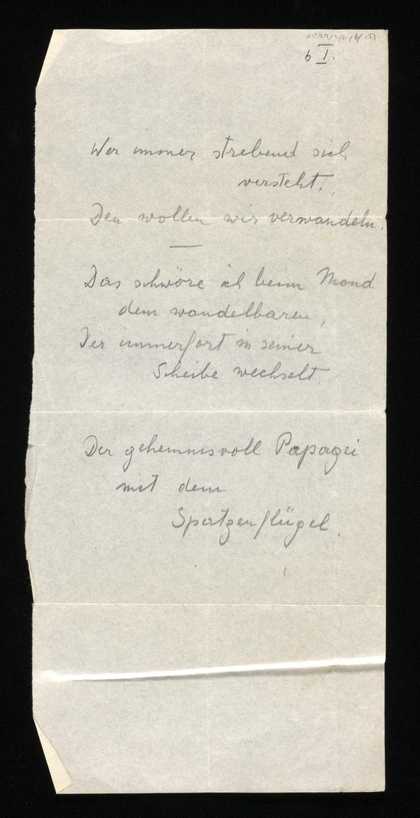 6 I.
Wer immer strebend sich
versteht,
Den wollen wir verwandeln.
Das schwöre ich beim Mond
dem wandelbaren,
Der immerfort in seiner
Scheibe wechselt
Der geheimnisvoll Papagei
mit dem
Spatzenflügel.